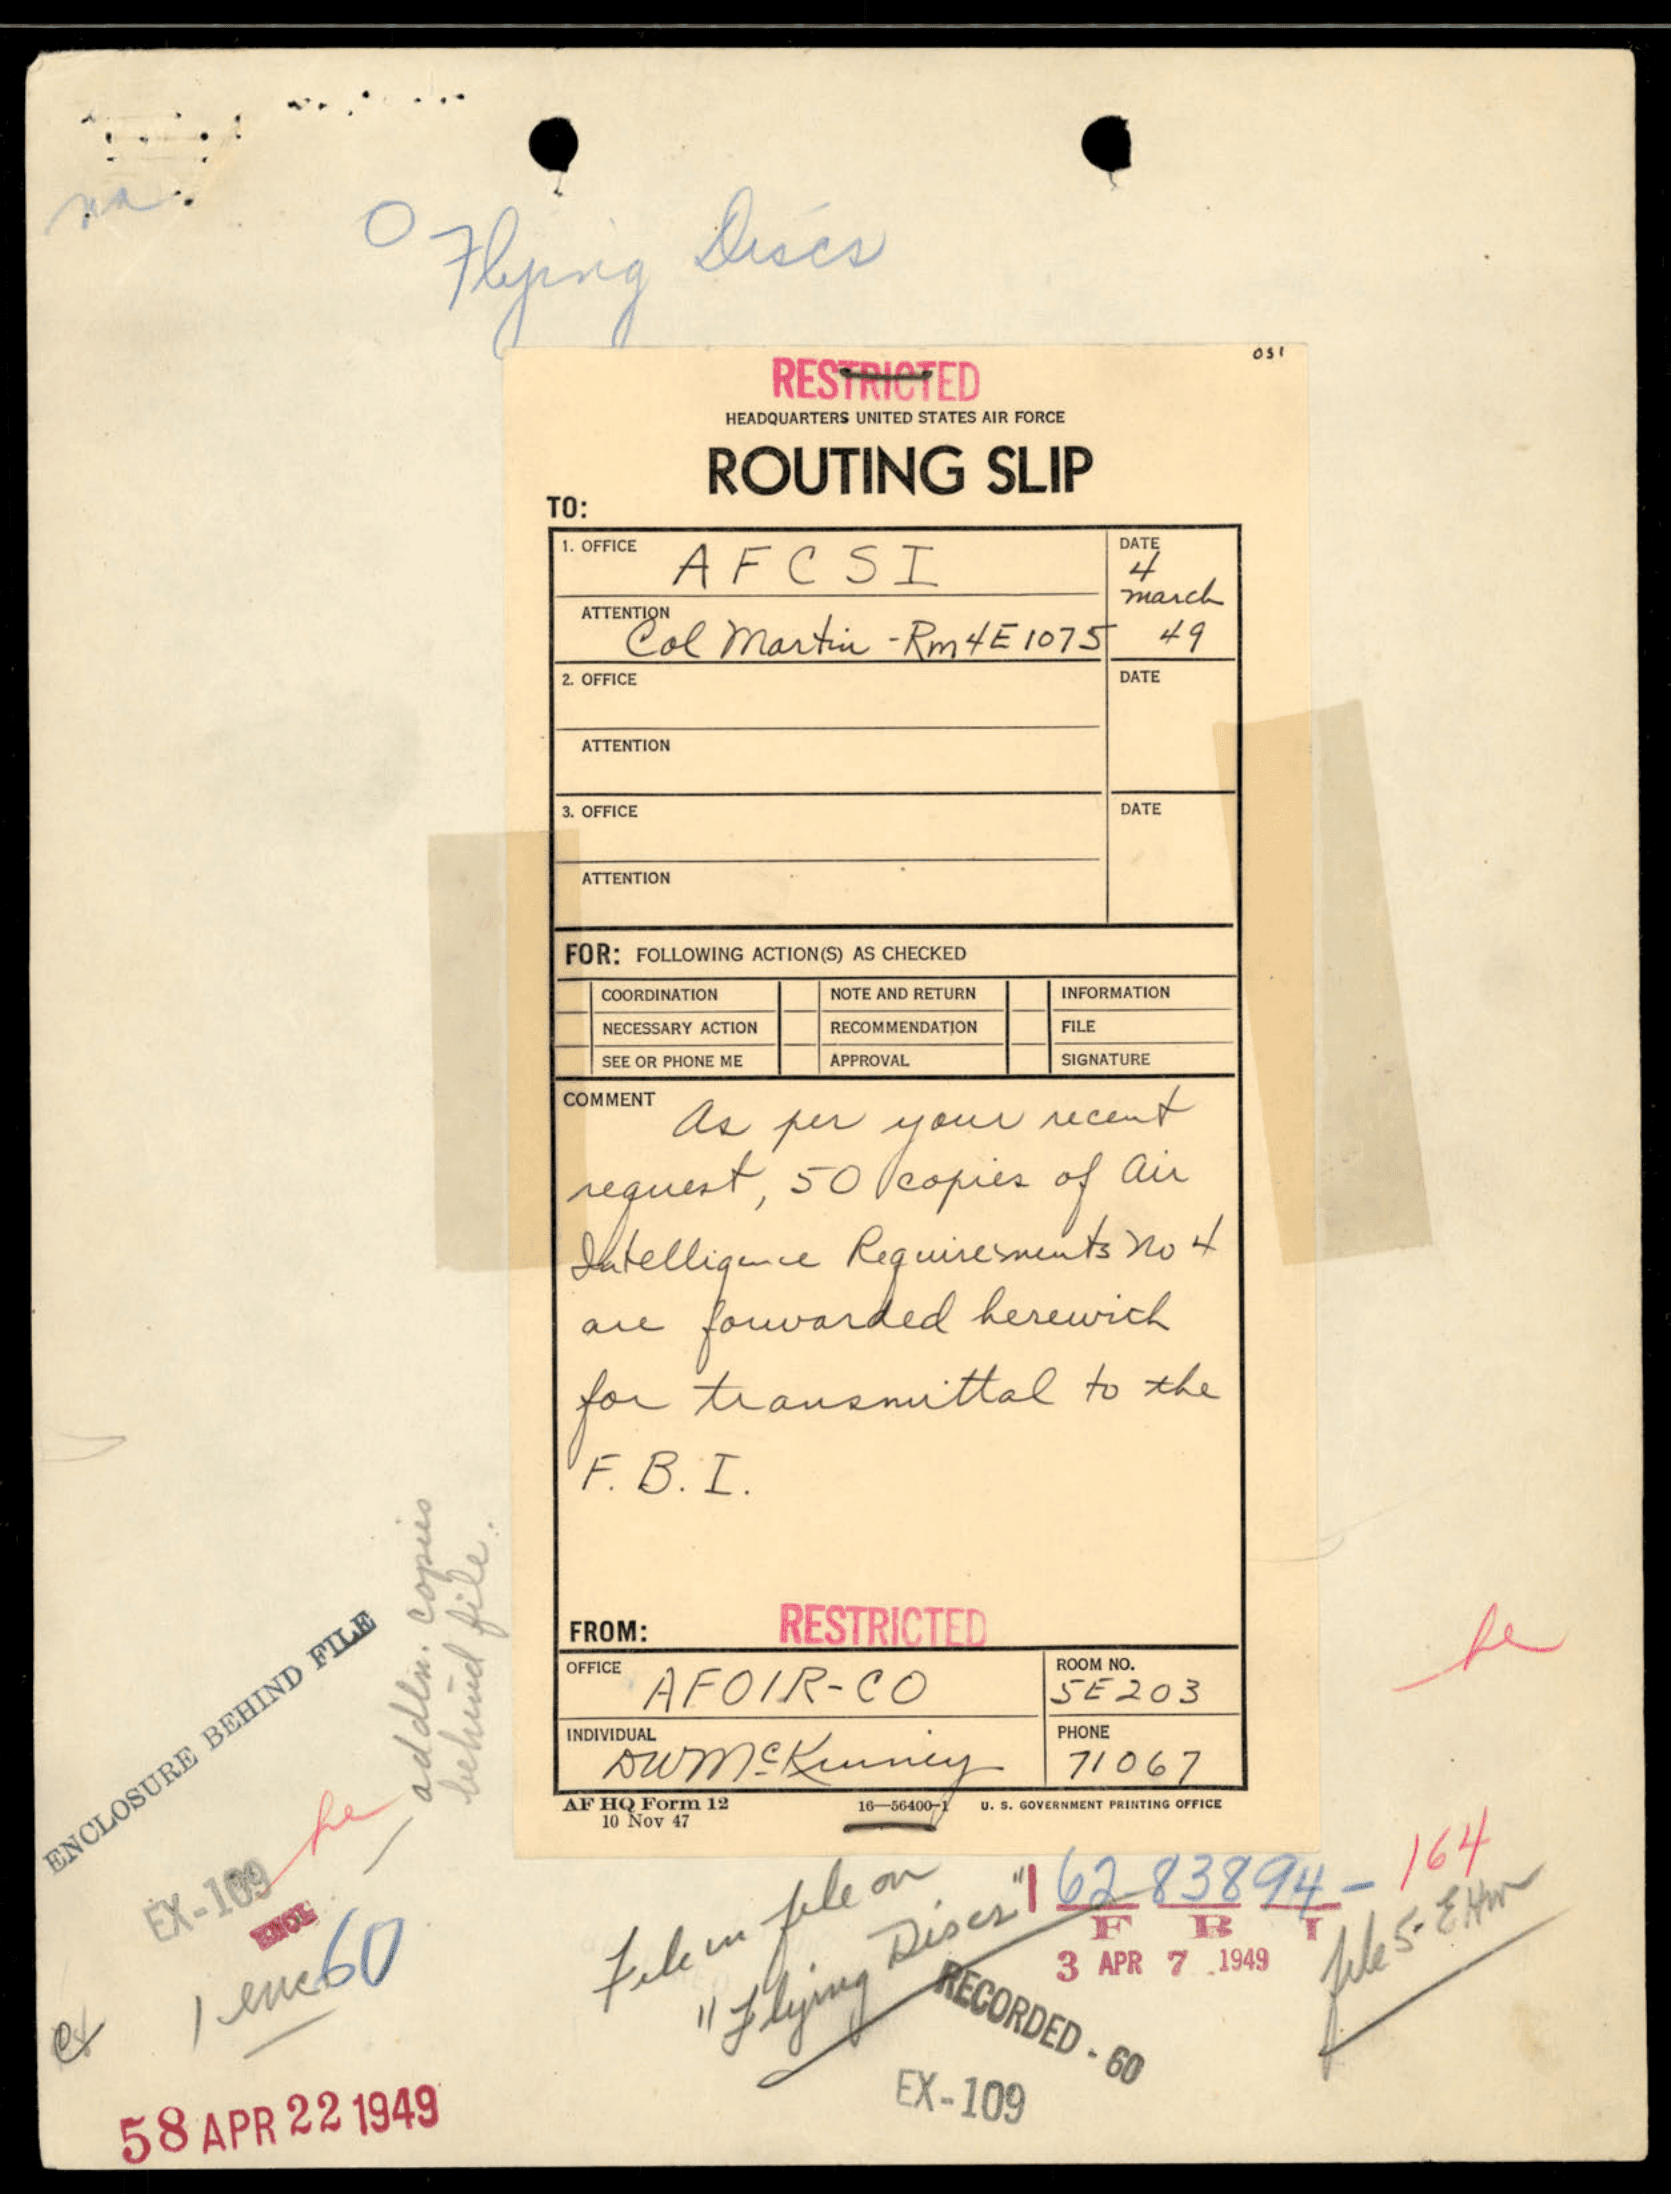 na
Flying Discs
OSI
RESTRICTED
HEADQUARTERS UNITED STATES AIR FORCE
ROUTING SLIP
TO:
1. OFFICE
AFCSI
DATE
4
march
49
ATTENTION
Col Martin - Rm 4E 1075
2. OFFICE
DATE
ATTENTION
3. OFFICE
DATE
ATTENTION
FOR: FOLLOWING ACTION(S) AS CHECKED
COORDINATION NOTE AND RETURN INFORMATION
NECESSARY ACTION RECOMMENDATION FILE
SEE OR PHONE ME APPROVAL SIGNATURE
COMMENT
As per your recent
request, 50 copies of Air
Intelligence Requirements No 4
are forwarded herewith
for transmittal to the
F. B. I.
RESTRICTED
FROM:
OFFICE
AFOIR-CO
ROOM NO.
5E203
INDIVIDUAL
DW McKinney
PHONE
71067
AF HQ Form 12
10 Nov 47
16—56400-1 U. S. GOVERNMENT PRINTING OFFICE
ENCLOSURE BEHIND FILE
addln. copies
behind file.
EX-109
ENCL
1 enc
60
58 APR 22 1949
File in file on
"Flying Discs"
62-83894-164
F B I
3 APR 7 1949
RECORDED - 60
EX-109
file 5-EHM